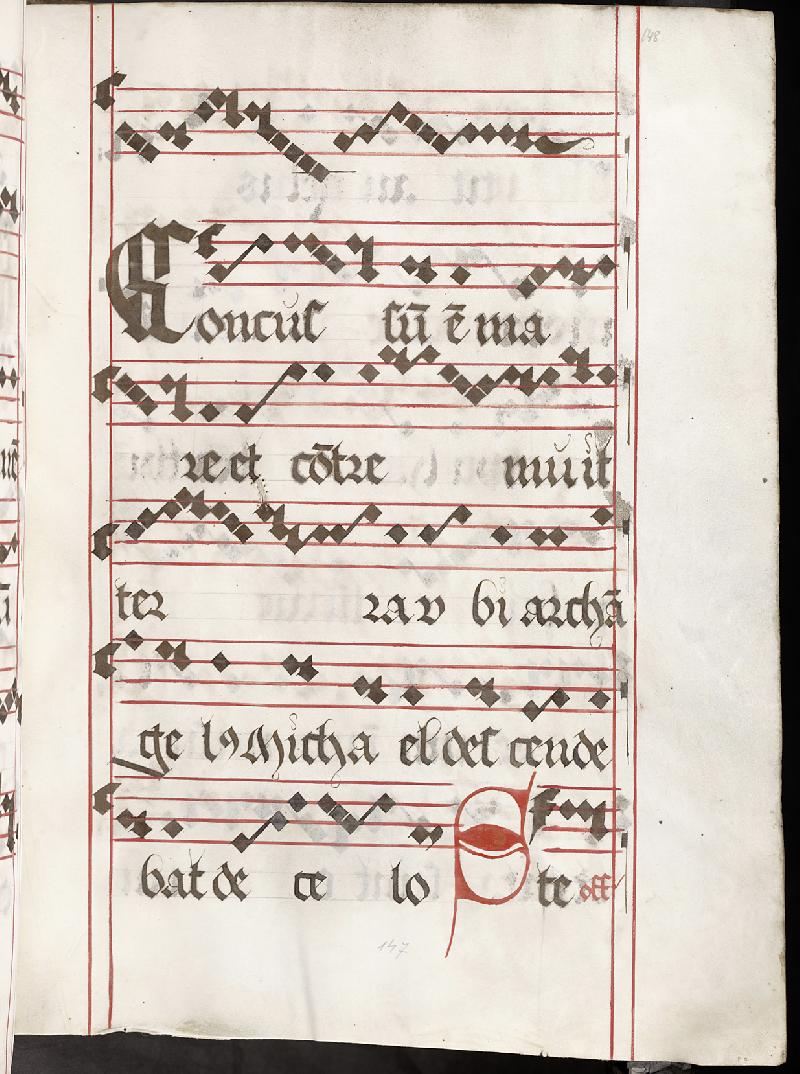 148
Concus sū ē ma
re et cōtre muit
ter ra v bi archā
ge lꝯ Micha el des cende
bat de ce lo Ste off
147